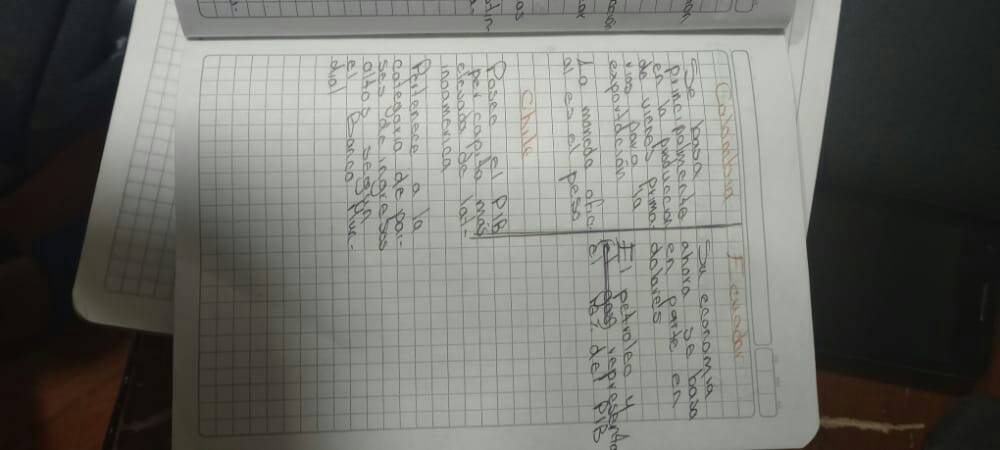 Colombia
Se basa
principalmente
en la produccion
de vienes prima-
rios para la
exportación
La moneda ofici-
al es el peso
Chile
Posee el PIB
per capita más
elevada de lati-
noamerica
Pertenece a la
categoria de pai-
ses de ingresos
altos según
el Banco Mun-
dial
Ecuador
Su economia
ahora se basa
en parte en
dolares
El petroleo y
representa
el 18% del PIB